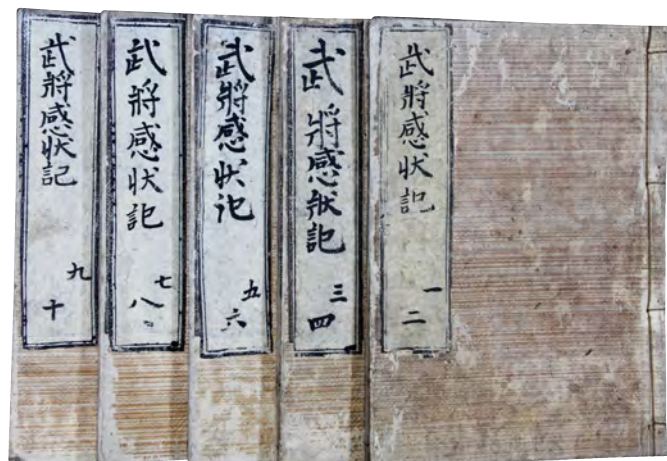 武將感状記
一
二
武將感狀記
三
四
武將感状記
五
六
武將感状記
七
八
武將感状記
九
十